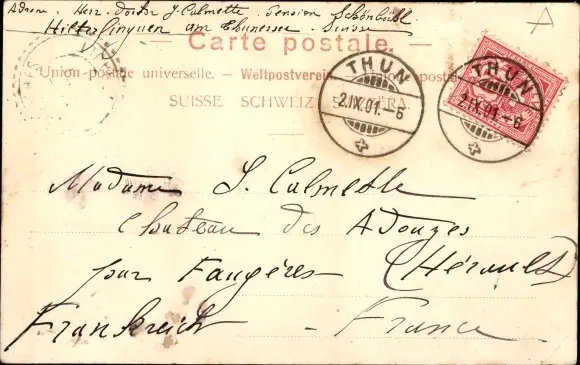 Adresse. Herr. Doctor J. Calmette. Pension Schönbühl
Hilterfinguen am Thunersee. Suisse
Carte postale.
Union postale universelle. – Weltpostverein. – Unione postale
SUISSE SCHWEIZ SVIZZERA.
THUN
2.IX.01.-6
THUN
2.IX.01.-6
A
Madame S. Calmette
Chateau des Adouzes
par Faugéres (Hérault)
Frankreich – France